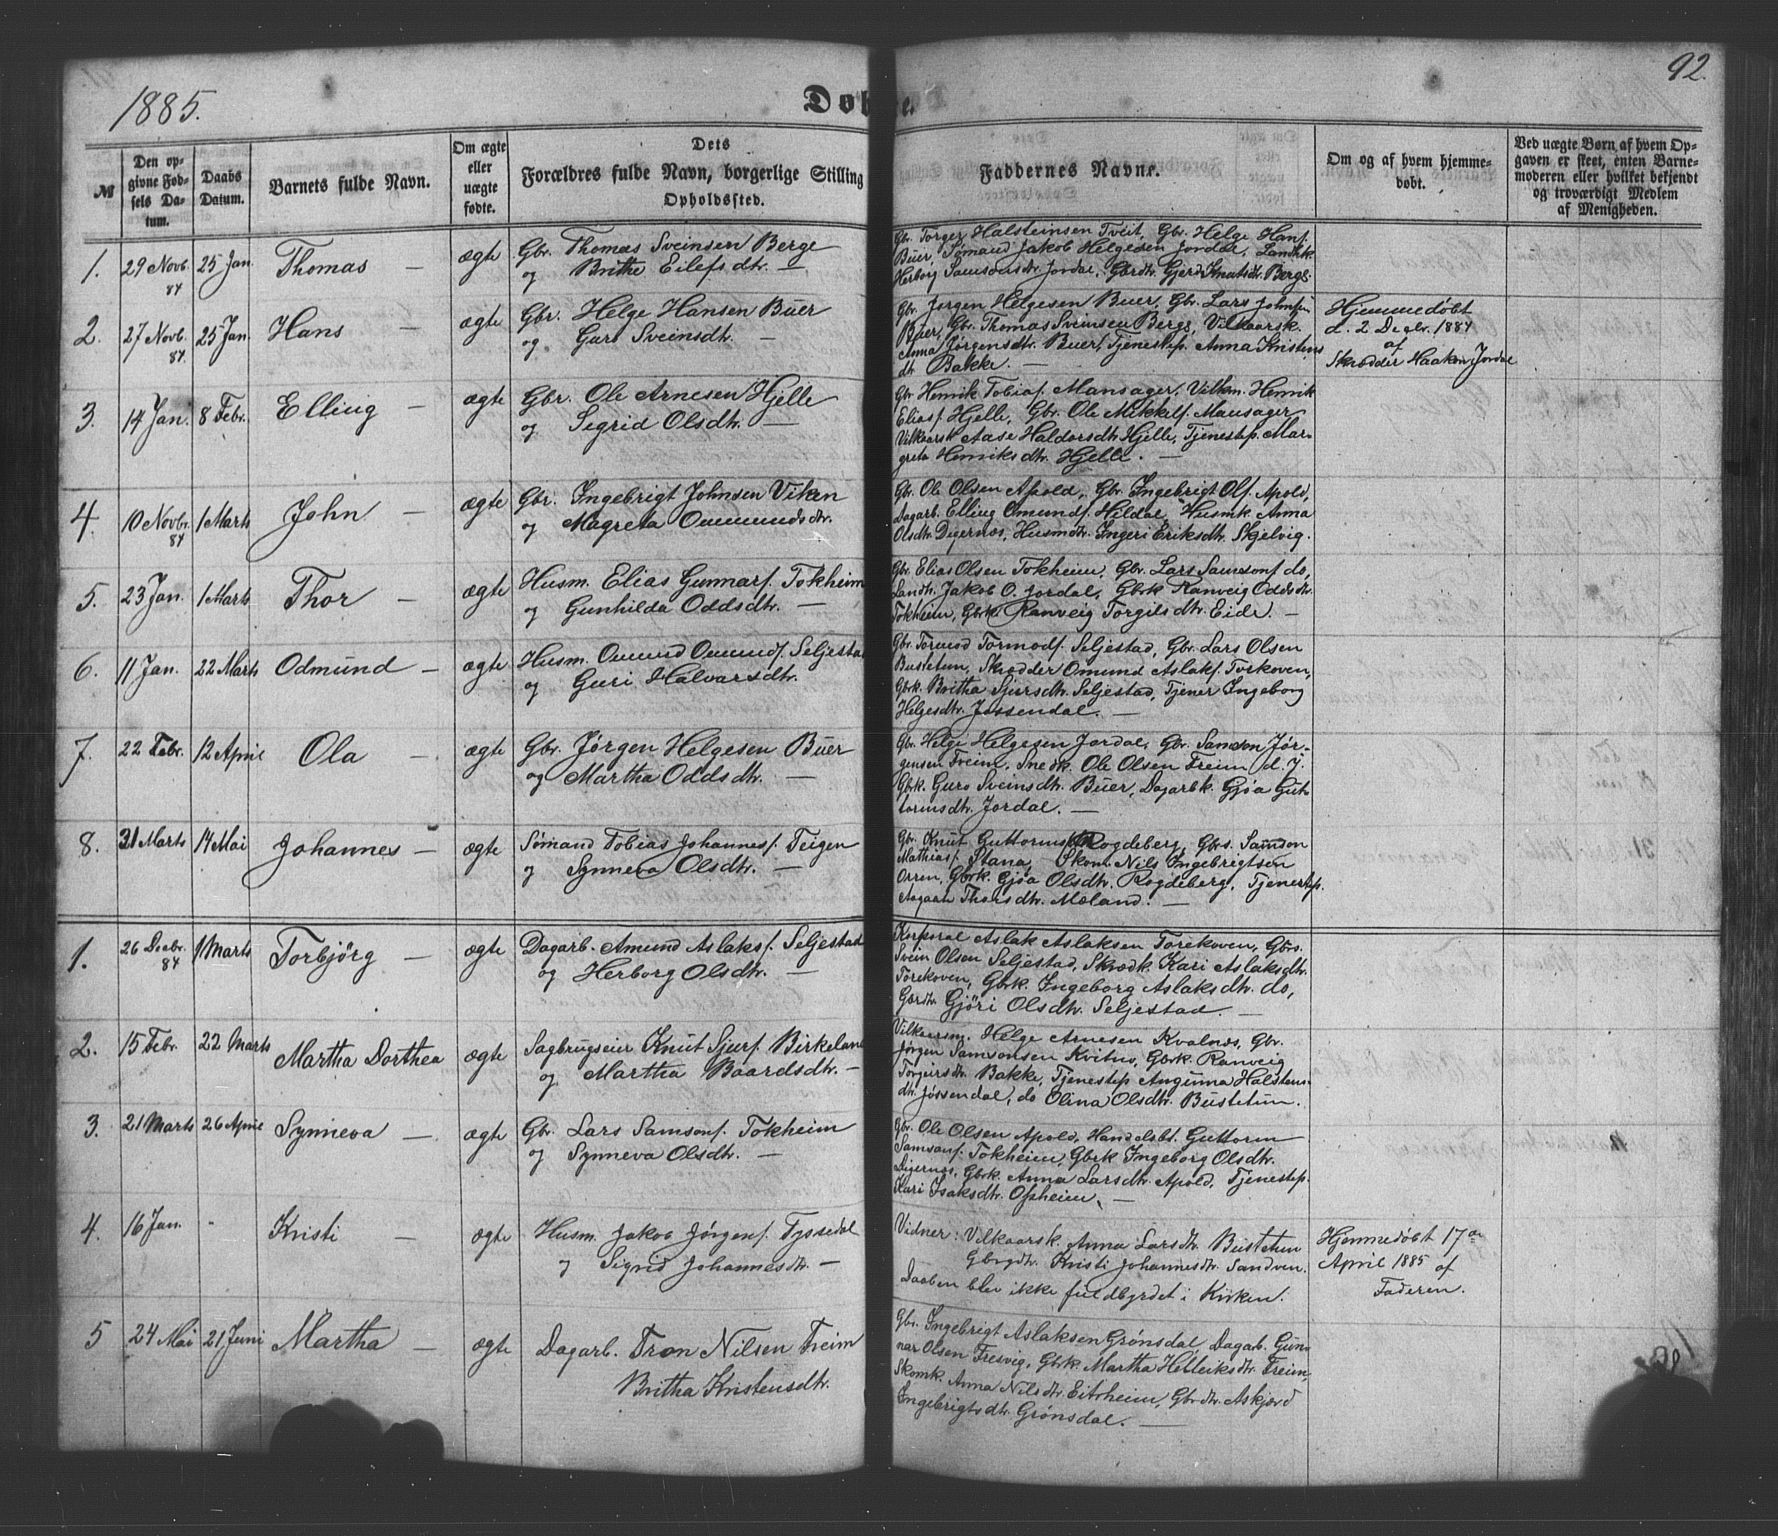 1885.
Døbte.
92.
№
Den opgivne Fødsels Datum.
Daabs Datum.
Barnets fulde Navn.
Om ægte eller uægte fødte.
Dets Forældres fulde Navn, borgerlige Stilling Opholdssted.
Faddernes Navne.
Om og af hvem hjemmedøbt.
Ved uægte Børn af hvem Opgaven er skeet, enten Barnemoderen eller hvilket bekjendt og troværdigt Medlem af Menigheden.
1. 29 Novb. 84 25 Jan. Thomas — ægte
Gbr. Thomas Sveinsen Berge
og Brithe Eilefsdtr. —
Gbr. Torger Halsteinsen Tveit, Gbr. Helge Hans.
Buer, Sømand Jakob Helgesen Jordal,
Herborg Samsonsdtr. Jordal, Gbrdtr. Gjerd Knutsdtr. Berge.
2. 27 Novb. 84. 25 Jan. Hans — ægte
Gbr. Helge Hansen Buer
og Guro Sveinsdtr. —
Gbr. Jørgen Helgesen Buer, Gbr. Lars Johnsen
Buer, Gbr. Thomas Sveinsen Berge, Vilkaarsk.
Anna Jørgensdtr. Buer, Tjenestep. Anna Kristens
dtr. Bakke. —
Hjemmedøbt
d. 2 Decbr. 1884
af
Skrædder Haakon Jordal
3. 14 Jan. 8 Febr. Elling — ægte
Gbr. Ole Arnesen Hjelle
og Sigrid Olsdtr. —
Gbr. Henrik Tobias. Mansager, Vilkm. Henrik
Elias. Hjelle, Gbr. Ole Mikkels. Mansager
Vilkaarsk Aase Haldorsdtr. Hjelle, Tjenestep. Mar-
greta Henriksdtr. Hjelle. —
4. 10 Novbr. 84 1 Marts John — ægte
Gbr. Ingebrigt Johnsen Viken
og Magreta Ommundsdtr.
Gbr. Ole Olsen Apold, Gbr. Ingebrigt Ols. Apold,
Dagarb. Elling Omunds. Hildal, Husmk. Anna
Olsdtr. Digernes, Husmdtr. Ingeri Eriksdtr. Skjelvig.
5. 23 Jan. 1 Marts Thor — ægte
Husm. Elias Gunnars. Tokheim
og Gunhilda Oddsdtr. —
Gbr. Elias Olsen Tokheim, Gbr. Lars Samsons. do,
Landh. Jakob O. Jordal, Gbrk Ranveig Oddsdtr.
Tokheim, Gbrk. Ranveig Torgilsdtr. Eide. —
6. 11 Jan. 22 Marts Odmund — ægte
Husm. Omund Omunds. Seljestad
og Guri Halvarsdtr.
Gbr. Tormod Tormods. Seljestad, Gbr. Lars Olsen
Bustetun, Skrædder Omund Aslaks. Toskoven,
Gbrk. Britha Sjursdtr. Seljestad, Tjener Ingeborg
Helgesdtr. Jøssendal. —
7. 22 Febr. 12 April Ola — ægte
Gbr. Jørgen Helgesen Buer
og Martha Oddsdtr. —
Gbr. Helge Helgesen Jordal, Gbr. Samson Jør-
gensen Freim, Snedk. Ole Olsen Freim d. y.
Gbrk. Guro Sveinsdtr. Buer, Dagarbk. Gjøa Gut-
tormsdtr. Jordal. —
8. 31 Marts 14 Mai Johannes — ægte
Sømand Tobias Johannes. Teigen
og Synneva Olsdtr. —
Gbr. Knut Guttorms. Rogdeberg, Gbrs. Samson
Mathias. Stana, Skom. Nils Ingebrigtsen
Orren, Gbrk. Gjøa Olsdtr. Rogdeberg, Tjenestep.
Aagaate Thorsdtr. Mæland. —
1. 26 Decbr. 84 1 Marts Torbjørg — ægte
Dagarb. Amund Aslaks. Seljestad
og Herborg Olsdtr. —
Korporal Aslak Aslaksen Torekoven, Gbrs.
Svein Olsen Seljestad, Skrædk. Kari Aslaksdtr.
Torekoven, Gbrk. Ingeborg Aslaksdtr. do,
Gbrdtr. Gjøri Olsdtr. Seljestad. —
2. 15 Febr. 22 Marts Martha Dorthea ægte
Sagbrugseier Knut Sjurs. Birkeland
og Martha Baardsdtr. —
Vilkaarsm. Helge Arnesen Kvalnæs, Gbr.
Jørgen Samsonsen Kvitno, Gbrk. Ranveig
Torgeirsdtr. Bakke, Tjenestep Angunna Halstens-
dtr. Jøssendal, do Olina Olsdtr. Bustetun.
3. 21 Marts 26 April Synneva — ægte
Gbr. Lars Samsons. Tokheim
og Synneva Olsdtr. —
Gbr. Ole Olsen Apold, Handelsbt. Guttorm
Samsons. Tokheim, Gbrk Ingeborg Olsdtr.
Digernes, Gbrk. Anna Larsdtr. Apold, Tjenestep.
Kari Isaksdtr. Opheim. —
4. 16 Jan. - Kristi — ægte
Husm. Jakob Jørgens. Tyssedal
og Sigrid Johannesdtr. —
Vidner: Vilkaarsk. Anna Larsdtr. Bustetun
Gbrgdtr. Kristi Johannesdtr. Sandven.
Daaben blev ikke fuldbyrdet i Kirken.
Hjemmedøbt 17de
April 1885 af
Faderen.
5 24 Mai 21 Juni Martha — ægte
Dagarb. Tron Nilsen Freim
Britha Kristensdtr.
Gbr. Ingebrigt Aslaksen Grønsdal, Dagarb. Gun-
nar Olsen Tresvig, Gbrk. Martha Helleiksdtr. Freim,
Skomk. Anna Nilsdtr. Eitrheim, Gbrdtr. Askjerd
Ingebrigtsdtr. Grønsdal. —